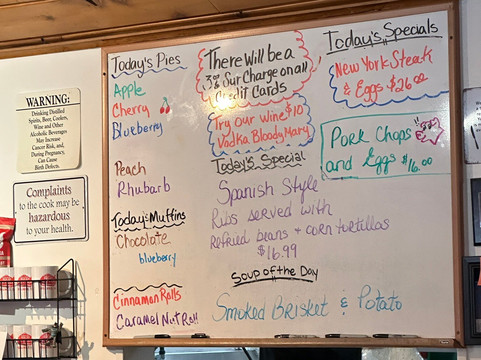 WARNING:
Drinking Distilled
Spirits, Beer, Coolers,
Wine and Other
Alcoholic Beverages
May Increase
Cancer Risk, and,
During Pregnancy,
Can Cause
Birth Defects.
Complaints
to the cook may be
hazardous
to your health.
Today's Pies
Apple
Cherry
Blueberry
Peach
Rhubarb
Today's Muffins
Chocolate
blueberry
Cinnamon Rolls
Caramel Nut Roll
There Will be a
3% Sur Charge on all
Credit Cards
Try our Wine $10
Vodka Bloody Mary
Today's Special
Spanish Style
Ribs served with
Refried beans + corn tortillas
$16.99
Soup of the Day
Smoked Brisket & Potato
Today's Specials
New York Steak
& Eggs $26.00
Pork Chops
and Eggs $16.00